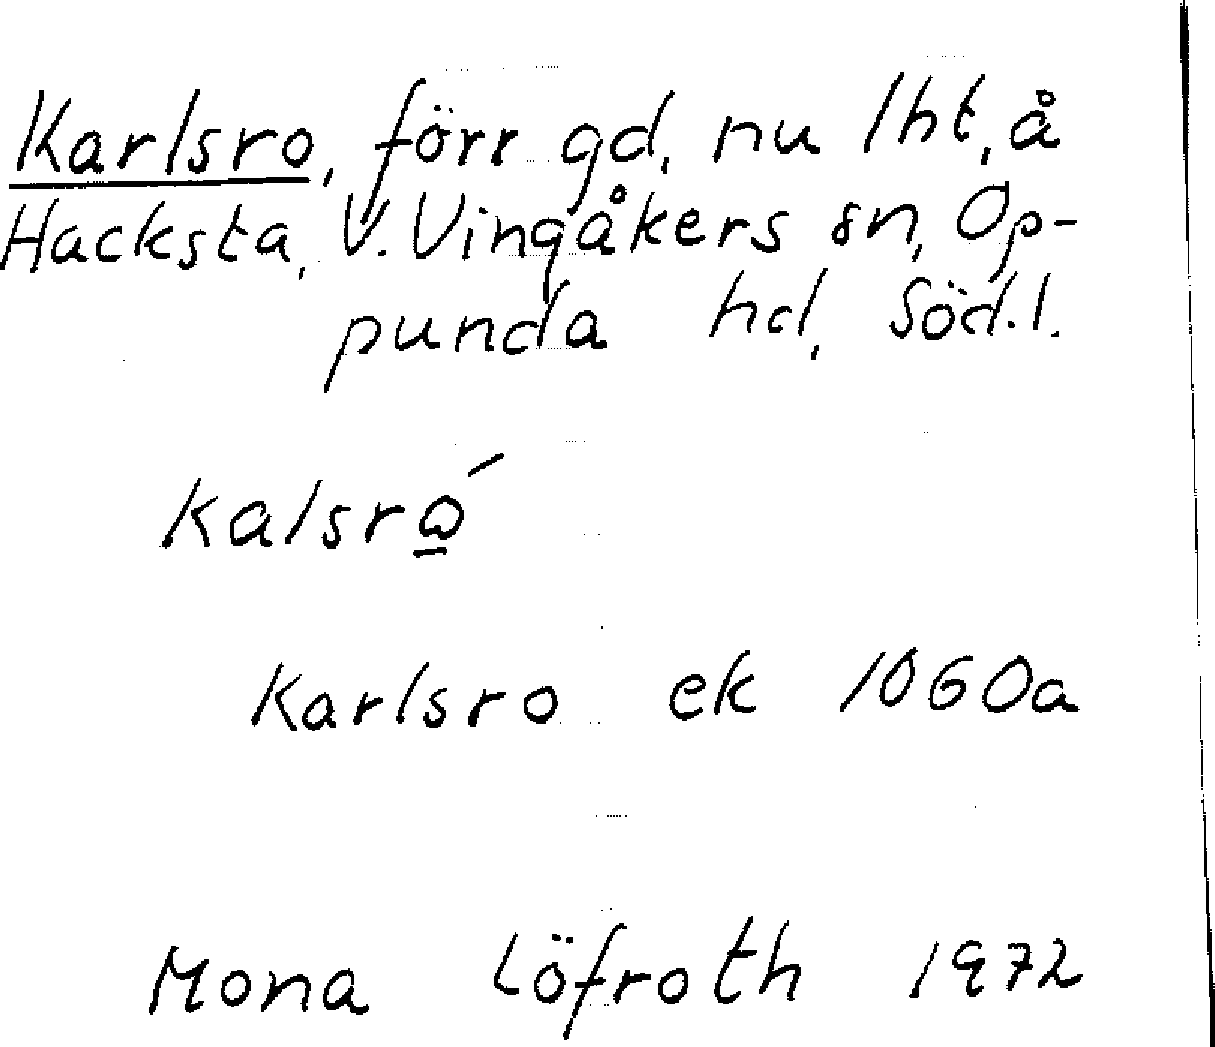 Karlsro, förr gd, nu lht, å
Hacksta, V. Vingåkers sn, Op-
punda hd, Söd.l.
Karlsro ek 1060a
Mona Löfroth 1972